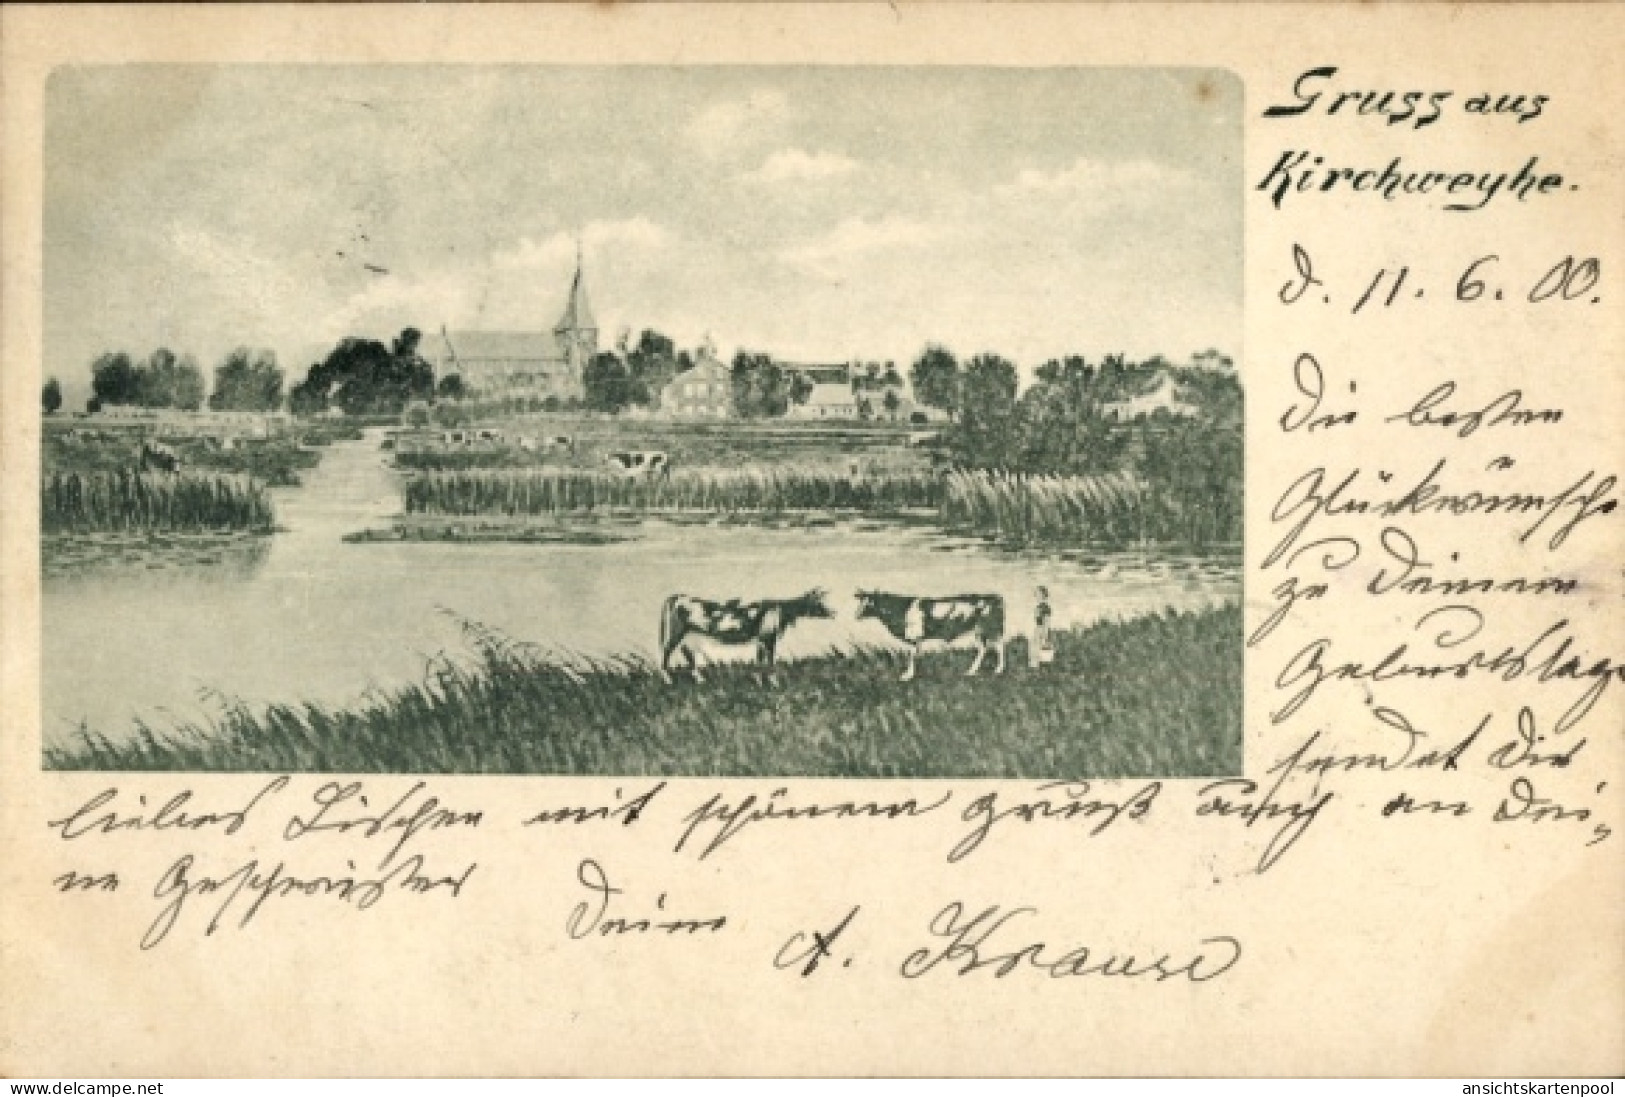 Gruss aus
Kirchweyhe.
d. 11. 6. 00.
Die besten
Glückwünsche
zu Deinem
Geburtstage
sendet Dir
liebes Lischen mit schönem Gruß auch an Dei-
ne Geschwister
Deine
A. Krause
www.delcampe.net
ansichtskartenpool